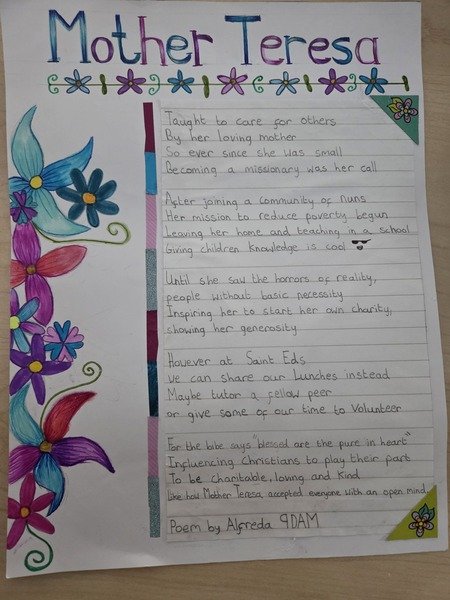 Mother Teresa
Taught to care for others
By her loving mother
So ever since she was small
Becoming a missionary was her call
After joining a community of nuns
Her mission to reduce poverty begun
Leaving her home and teaching in a school
Giving children knowledge is cool 😎
Until she saw the horrors of reality,
people without basic necessity
Inspiring her to start her own charity,
showing her generosity
However at Saint Eds
We can share our Lunches instead
Maybe tutor a fellow peer
or give some of our time to Volunteer
For the bibe says "blessed are the pure in heart"
Influencing Christians to play their part
To be charitable, loving and kind
like how Mother Teresa accepted everyone with an open mind.
Poem by Alfreda 9DAM